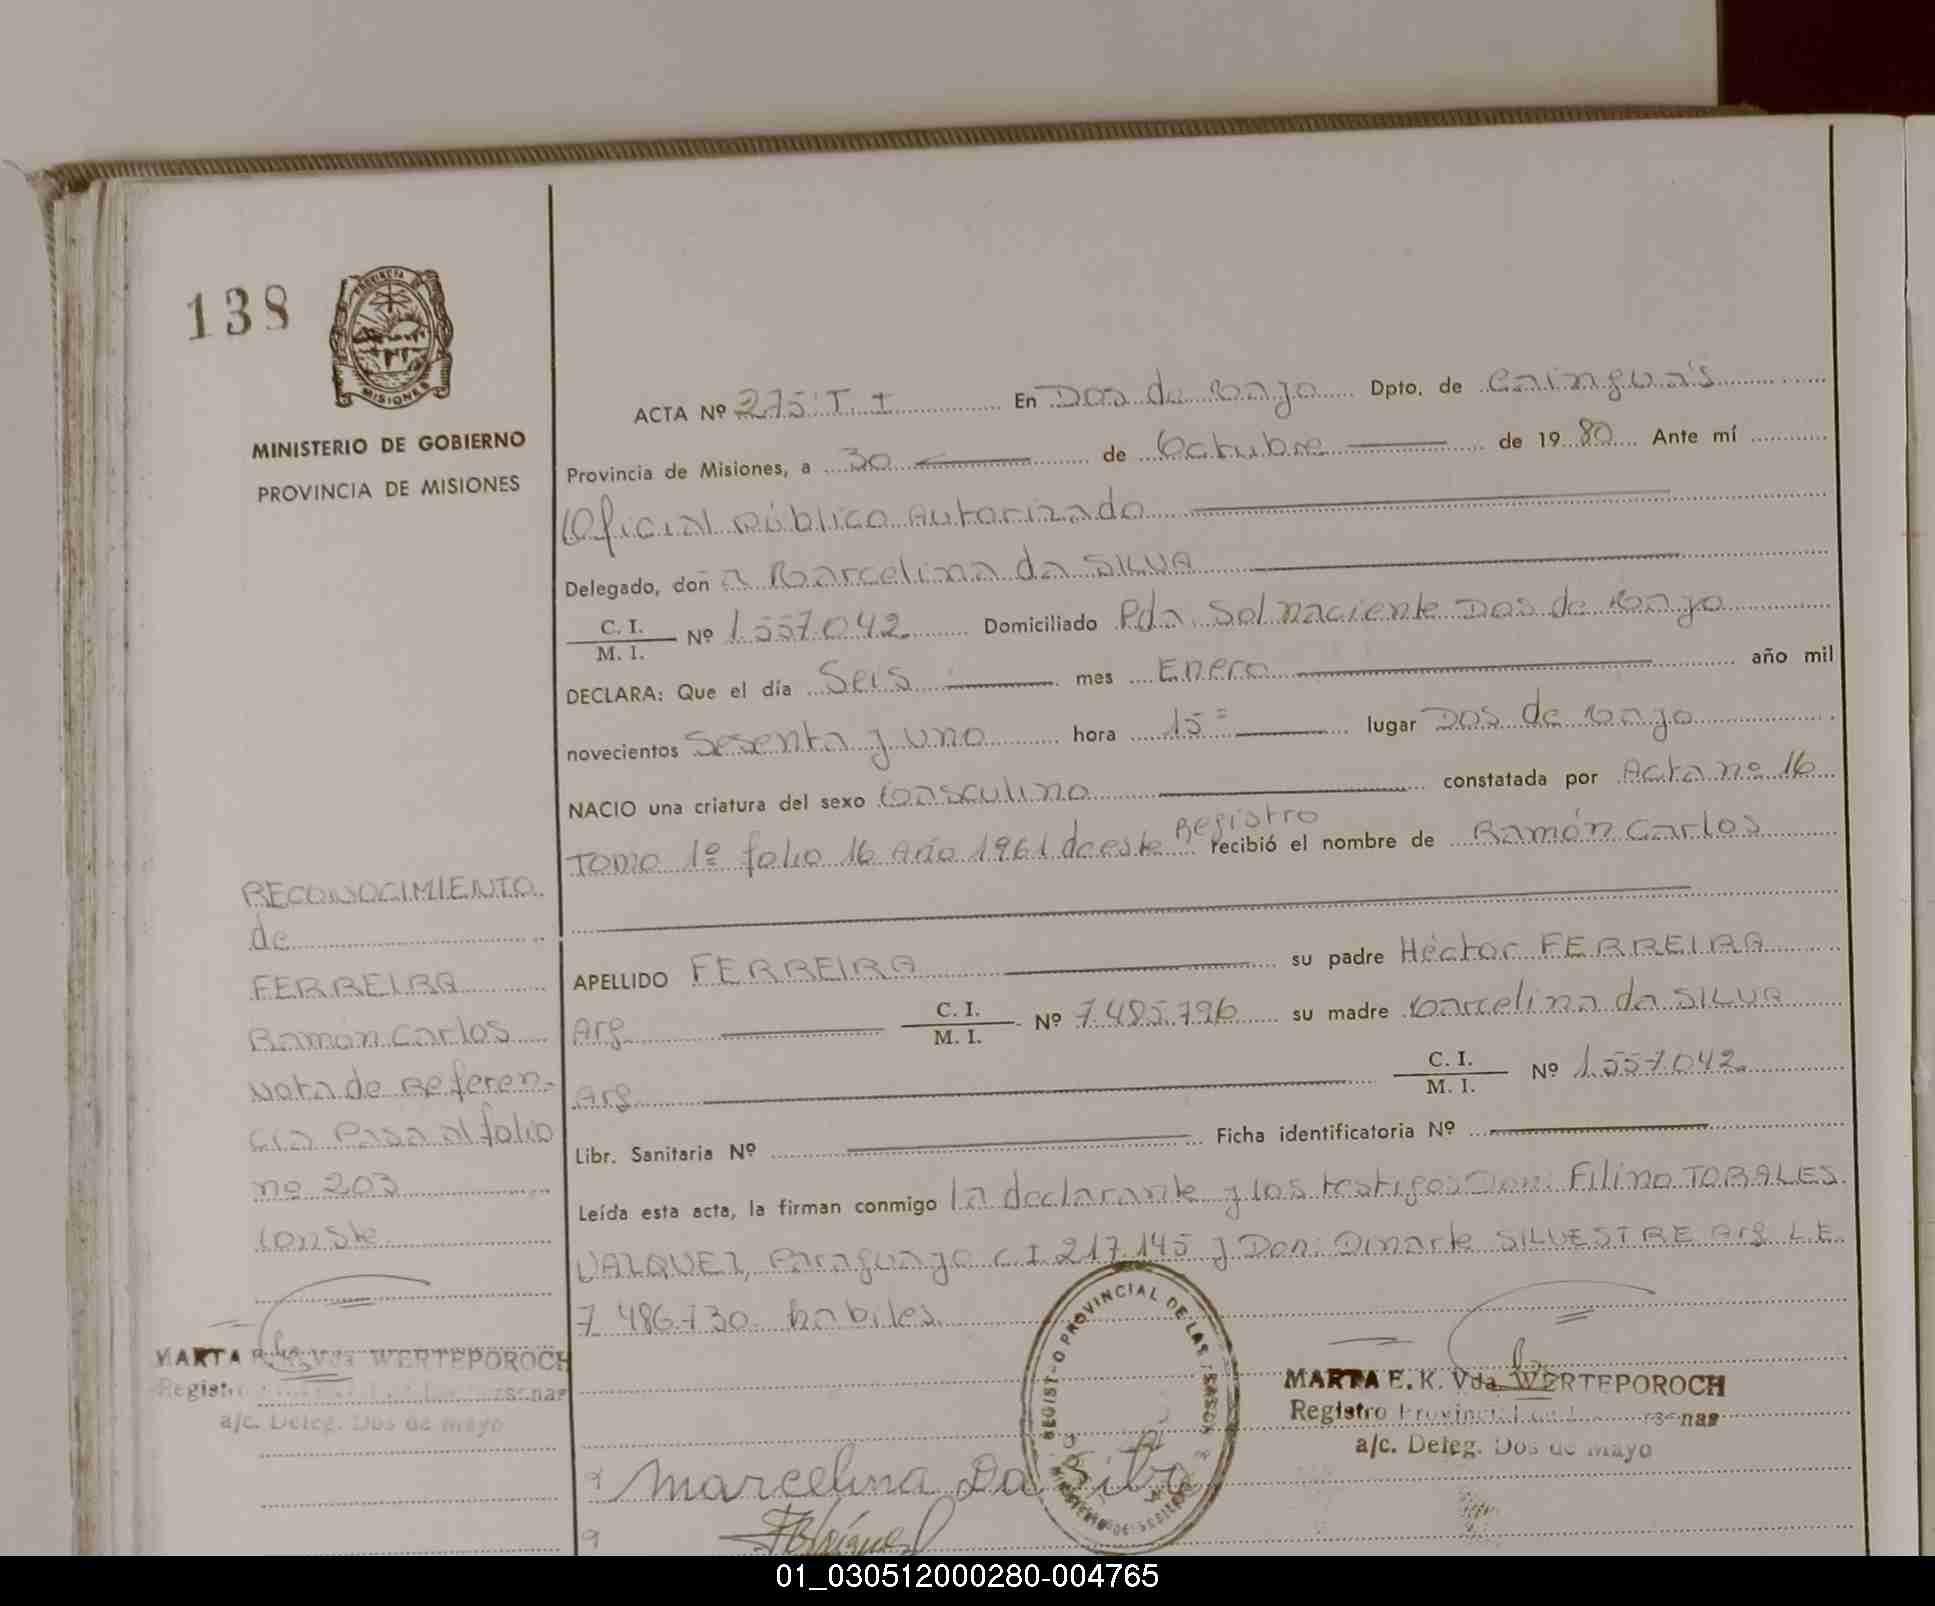 138
PROVINCIA
MISIONES
MINISTERIO DE GOBIERNO
PROVINCIA DE MISIONES
ACTA Nº 275 T I En Dos de Mayo Dpto. de Cainguás
Provincia de Misiones, a 30 de Octubre de 19 80 Ante mí
Oficial Público Autorizado
Delegado, don a Marcelina da SILVA
C. I.
M. I. Nº 1.557.042 Domiciliado Pda. Sol naciente Dos de Mayo
DECLARA: Que el día Seis mes Enero año mil
novecientos Sesenta y uno hora 15 lugar Dos de Mayo
NACIO una criatura del sexo Masculino constatada por Acta nº 16
Tomo 1º folio 16 Año 1961 de este Registro recibió el nombre de Ramón Carlos
APELLIDO FERREIRA su padre Héctor FERREIRA
Arg. C. I.
M. I. Nº 7.485.796 su madre Marcelina da SILVA
Arg. C. I.
M. I. Nº 1.557.042
Libr. Sanitaria Nº Ficha identificatoria Nº
Leída esta acta, la firman conmigo la declarante y los testigos Don: Filino TORALES
VAZQUEZ, Paraguayo C.I 217.145 y Don: Dinarte SILVESTRE Arg. L.E.
7.486.730 habiles.
RECONOCIMIENTO
de
FERREIRA
Ramón Carlos
Nota de Referen-
cia Pasa al folio
nº 203
Conste
MARTA Vda WERTEPOROCH
a/c. Deleg. Dos de Mayo
MARTA E. K. Vda. WERTEPOROCH
Registro Provincial
a/c. Deleg. Dos de Mayo
REGISTRO PROVINCIAL DE LAS PERSONAS
Marcelina Da Silva
01_030512000280-004765